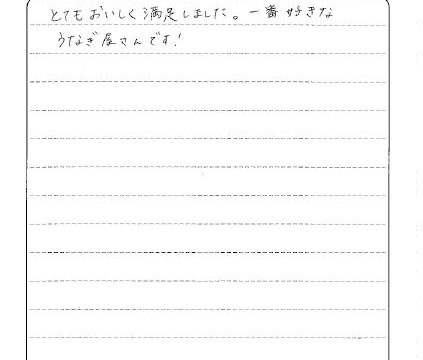 とてもおいしく満足しました。一番好きな
うなぎ屋さんです!